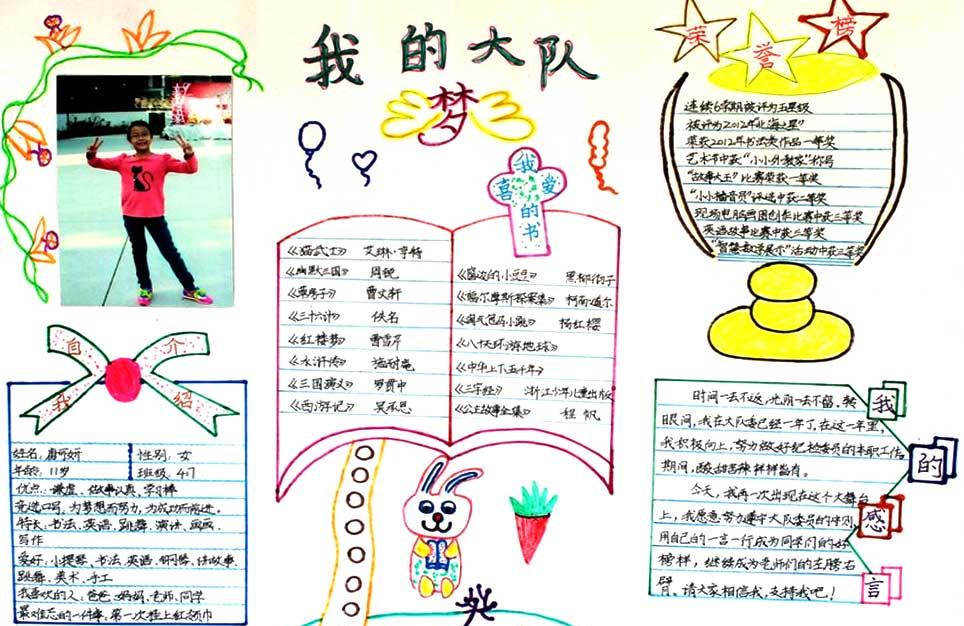 我的大队
梦
荣誉榜
连续6学期被评为五星级
被评为2012年"北海之星"
荣获2012年书法类作品一等奖
艺术节中获"小小外教家"称号
"故事大王"比赛荣获一等奖
"小小播音员"评选中获一等奖
现场电脑画图创作比赛中获三等奖
英语故事比赛中获三等奖
"智慧数学展示"活动中获三等奖
我喜爱的书
《猫武士》 艾琳·亨特
《幽默三国》 周锐
《草房子》 曹文轩
《三十六计》 佚名
《红楼梦》 曹雪芹
《水浒传》 施耐庵
《三国演义》 罗贯中
《西游记》 吴承恩
《窗边的小豆豆》 黑柳彻子
《福尔摩斯探案集》 柯南道尔
《淘气包马小跳》 杨红樱
《八十天环游地球》
《中华上下五千年》
《三字经》 浙江少年儿童出版
《公主故事全集》 程帆
自我介绍
姓名：唐 妍 性别：女
年龄：11岁 班级：4
优点：谦虚、做事认真，学习棒
竞选口号：为梦想而努力，为成功而前进。
特长：书法、英语、跳舞、演讲、画画、
写作
爱好：小提琴、书法、英语、钢琴、讲故事、
跳舞、美术、手工
我喜欢的人：爸爸、妈妈、老师、同学
最难忘的一件事：第一次挂上红领巾
我的感言
时间一去不返，光阴一去不留。转
眼间，我在大队委已经一年了，在这一年里，
我积极向上，努力做好纪检委员的本职工作。
期间，酸甜苦辣样样皆有。
今天，我再一次出现在这个大舞台
上，我愿意努力遵守大队委员的守则，
用自己的一言一行成为同学们的好
榜样，继续成为老师们的左膀右
臂。请大家相信我，支持我吧！